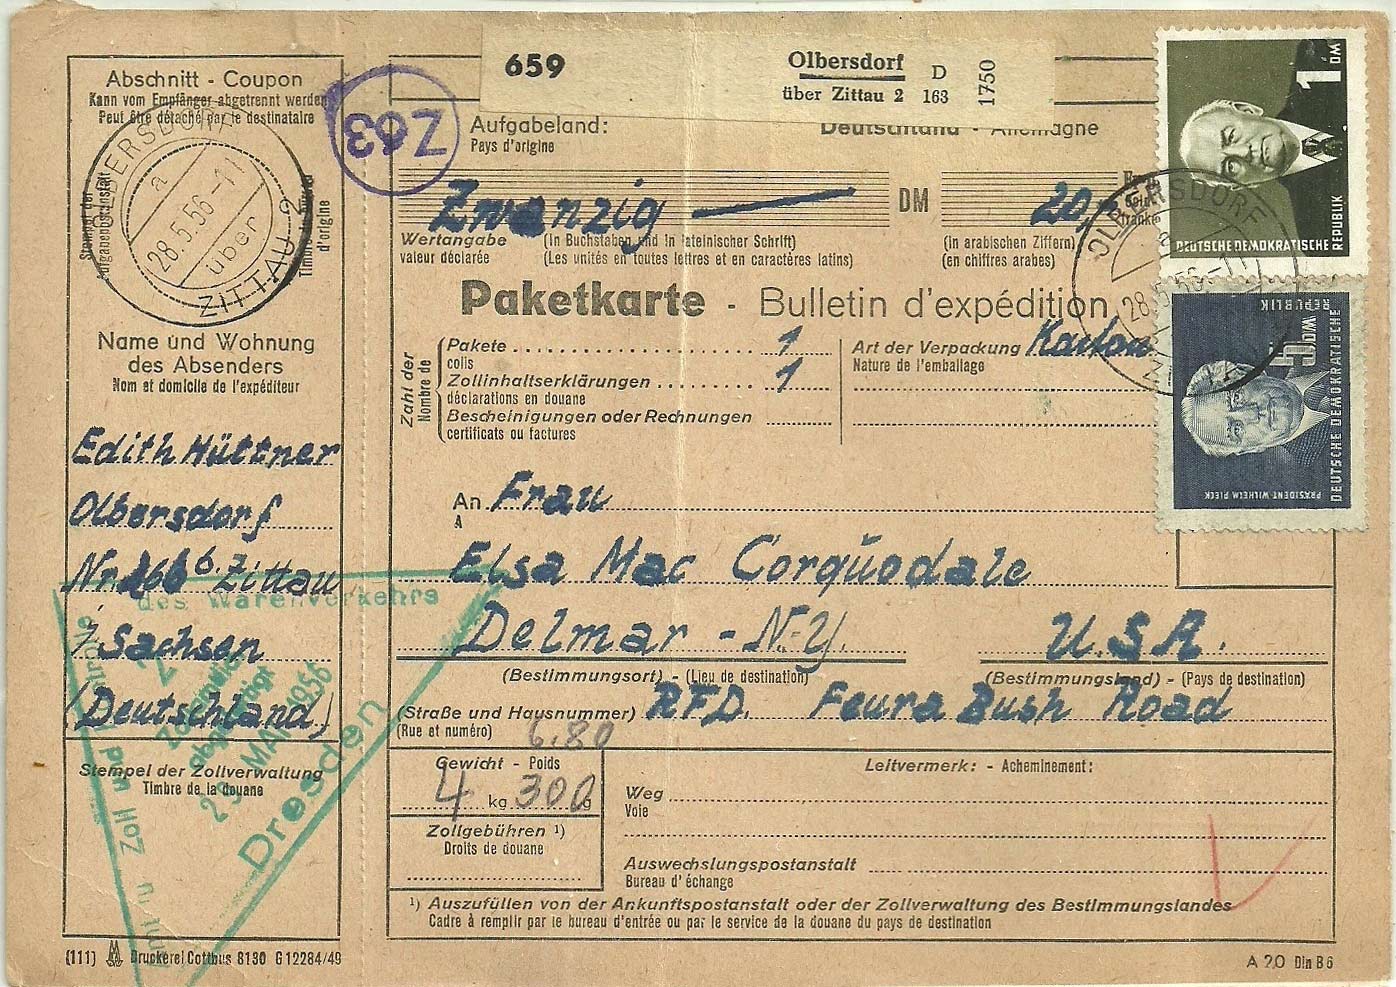 659
Olbersdorf
über Zittau 2
D
163
1750
1 DM
DEUTSCHE DEMOKRATISCHE
REPUBLIK
5 DM
DEUTSCHE DEMOKRATISCHE
REPUBLIK
PRÄSIDENT WILHELM PIECK
Abschnitt - Coupon
Kann vom Empfänger abgetrennt werden
Peut être détaché par le destinataire
OLBERSDORF
a
28.5.56-11
über
ZITTAU 2
Stempel der
Aufgabepostanstalt
Timbre du bureau
d'origine
Z63
Aufgabeland:
Pays d'origine
Deutschland - Allemagne
Zwanzig
DM
20,-
Wertangabe
valeur déclarée
(In Buchstaben und in lateinischer Schrift)
(Les unités en toutes lettres et en caractères latins)
(in arabischen Ziffern)
(en chiffres arabes)
OLBERSDORF
a
28.5.56-11
Paketkarte - Bulletin d'expédition
Zahl der
Nombre de
Pakete 1
colis
Zollinhaltserklärungen 1
déclarations en douane
Bescheinigungen oder Rechnungen
certificats ou factures
Art der Verpackung Karton
Nature de l'emballage
Name und Wohnung
des Absenders
Nom et domicile de l'expéditeur
Edith Hüttner
Olbersdorf
Nr. 266 b. Z. Zittau
i/ Sachsen
(Deutschland)
An Frau
A
Elsa Mac Corquodale
Delmar - N.Y. U.S.A.
(Bestimmungsort) - (Lieu de destination)
(Bestimmungsland) - (Pays de destination)
(Straße und Hausnummer) RFD. Feura Bush Road
(Rue et numéro)
6.80
Gewicht - Poids
4 kg 300 g
Zollgebühren ¹)
Droits de douane
Leitvermerk: - Acheminement:
Weg
Voie
Auswechslungspostanstalt
Bureau d'échange
¹) Auszufüllen von der Ankunftspostanstalt oder der Zollverwaltung des Bestimmungslandes
Cadre à remplir par le bureau d'entrée ou par le service de la douane du pays de destination
Stempel der Zollverwaltung
Timbre de la douane
des Warenverkehrs
29. MAI 1956
Dresden
(111) Druckerei Cottbus 8130 G 12284/49
A 20 Din B 6